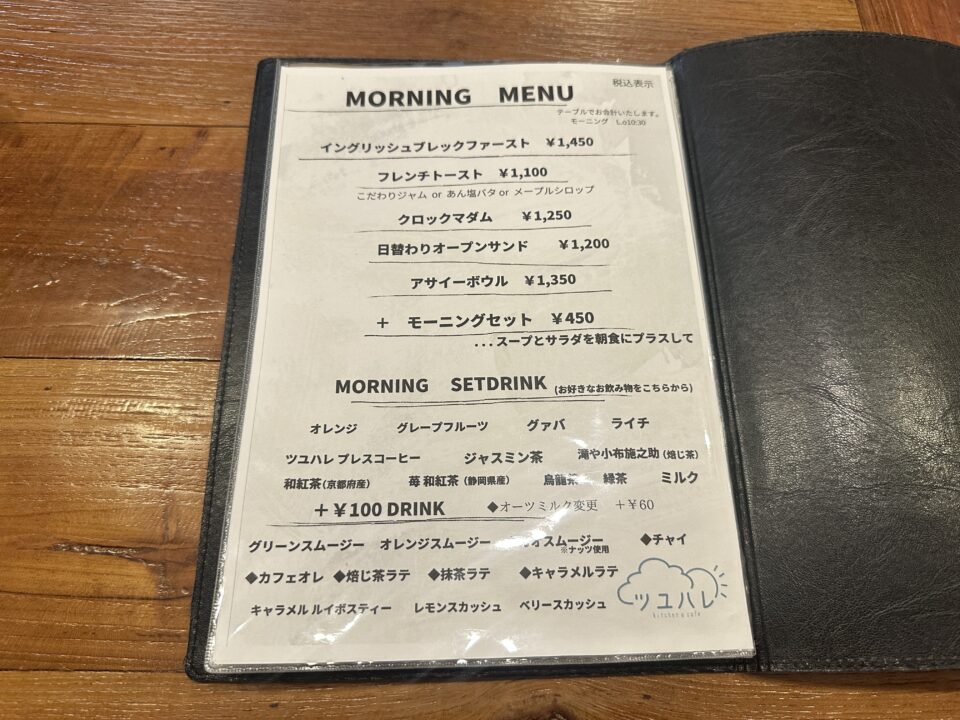 税込表示
MORNING MENU
テーブルでお会計いたします。
モーニング L.o10:30
イングリッシュブレックファースト ￥1,450
フレンチトースト ￥1,100
こだわりジャム or あん塩バタ or メープルシロップ
クロックマダム ￥1,250
日替わりオープンサンド ￥1,200
アサイーボウル ￥1,350
＋ モーニングセット ￥450
...スープとサラダを朝食にプラスして
MORNING SETDRINK (お好きなお飲み物をこちらから)
オレンジ グレープフルーツ グァバ ライチ
ツユハレ プレスコーヒー ジャスミン茶 滝や小布施之助 (焙じ茶)
和紅茶 (京都府産) 苺 和紅茶 (静岡県産) 烏龍茶 緑茶 ミルク
＋￥100 DRINK ◆オーツミルク変更 ＋￥60
グリーンスムージー オレンジスムージー スムージー ◆チャイ
※ナッツ使用
◆カフェオレ ◆焙じ茶ラテ ◆抹茶ラテ ◆キャラメルラテ
キャラメル ルイボスティー レモンスカッシュ ベリースカッシュ
ツユハレ
kitchen & cafe